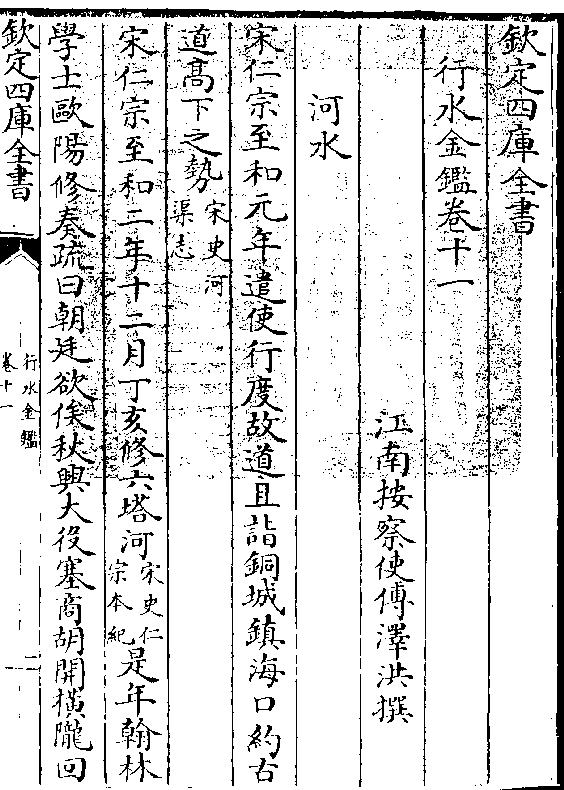 欽定四庫全書
行水金鑑卷十一
江南按察使傅澤洪撰
河水
宋仁宗至和元年遣使行度故道且詣銅城鎮海口約古
道髙下之勢宋史河渠志
宋仁宗至和二年十二月丁亥修六塔河宋史仁宗本紀是年翰林
學士歐陽修奏疏曰朝廷欲俟秋興大役塞商胡開橫隴回
欽定四庫全書
行水金鑑
卷十一
一